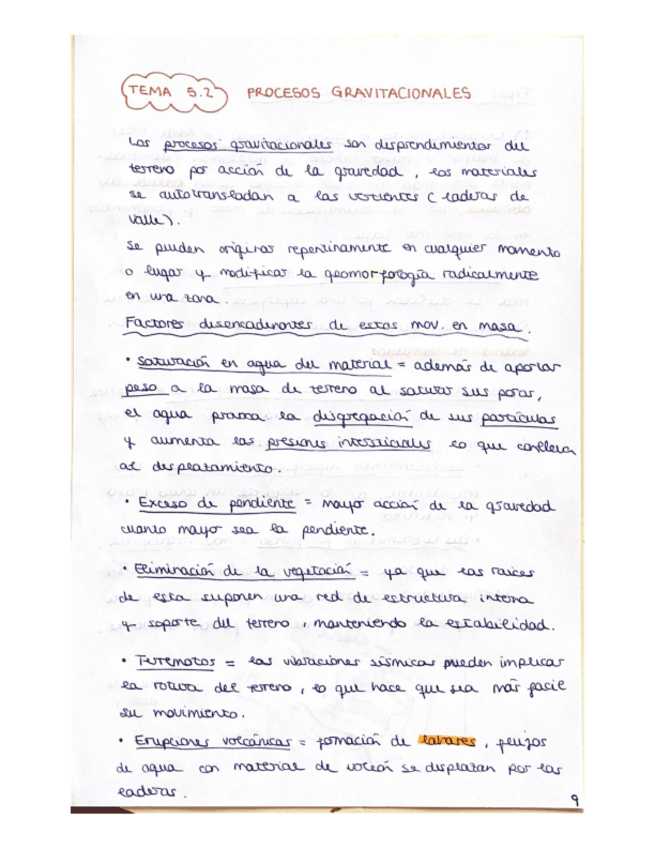 TEMA 5.2 PROCESOS GRAVITACIONALES
Los procesos gravitacionales son desprendimientos del
terreno por acción de la gravedad, los materiales
se autotransladan a las vertientes (laderas de
valle).
Se pueden originar repentinamente en cualquier momento
o lugar y modificar la geomorfología radicalmente
en una zona.
Factores desencadenantes de estos mov. en masa.
• Saturación en agua del material = además de aportar
peso a la masa de terreno al saturar sus poros,
el agua provoca la disgregación de sus partículas
y aumenta las presiones intersticiales lo que conlleva
al desplazamiento.
• Exceso de pendiente = mayor acción de la gravedad
cuanto mayor sea la pendiente.
• Eliminación de la vegetación = ya que las raíces
de esta suponen una red de estructura interna
y soporte del terreno, manteniendo la estabilidad.
• Terremotos = las vibraciones sísmicas pueden implicar
la rotura del terreno, lo que hace que sea más facil
su movimiento.
• Erupciones volcánicas = formación de lahares, flujos
de agua con material de volcán se desplazan por las
laderas.
9